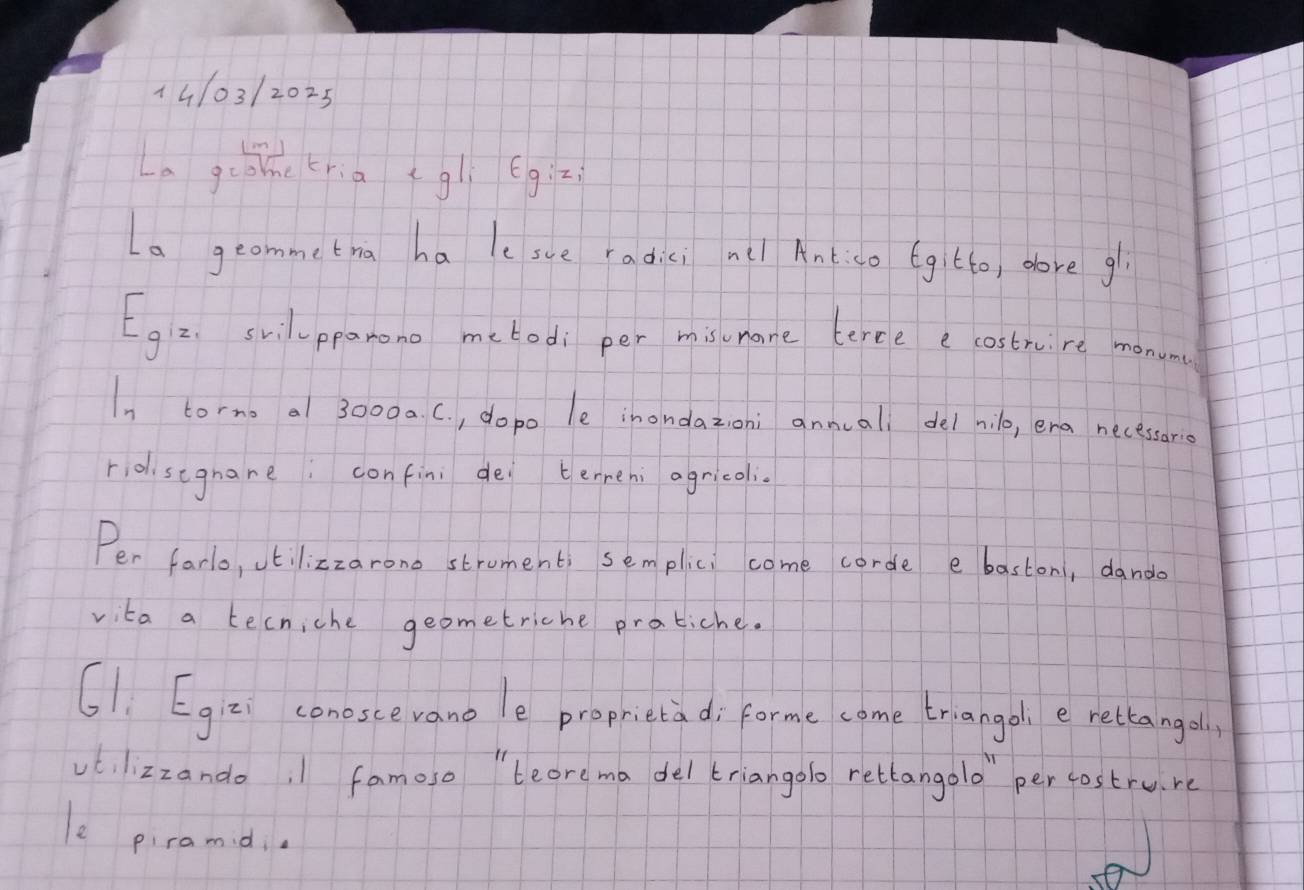 14/03/2025
La geometria e gli Egizi
La geommetria ha le sue radici nel Antico Egitto, dove gli
Egizi svilupparono metodi per misurare terre e costruire
In torno al 3000 a.C., dopo le inondazioni annuali del nilo, era necessario
ridisegnare i confini dei terreni agricoli.
Per farlo, utilizzarono strumenti semplici come corde e bastoni, dando
vita a tecniche geometriche pratiche.
Gli Egizi conoscevano le proprietà di forme come triangoli e rettangoli,
utilizzando il famoso "teorema del triangolo rettangolo" per costruire
le piramidi.